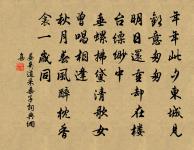 年年此夕東城見
歡意匆匆
明日還重卻在樓
台縹緲中
垂螺拂黛清歌女
曾唱相逢
秋月春風醉枕香
衾一歲同
晏幾道采桑子詞典網
集